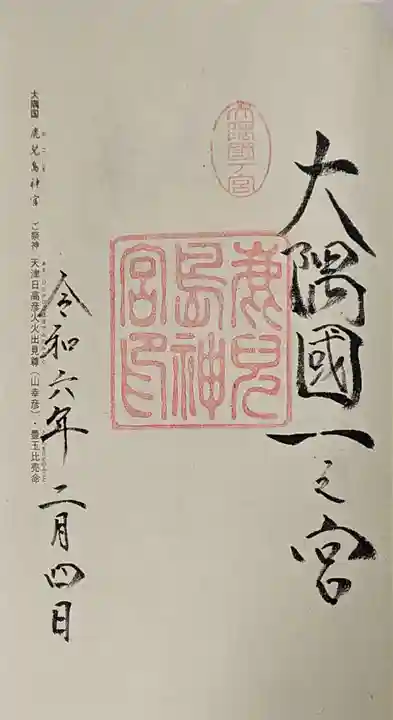 大隅國一之宮
大隅國一ノ宮
鹿兒
島神
宮印
令和六年二月四日
大隅国 鹿兒島神宮 ご祭神 天津日高彦火火出見尊（山幸彦）・豊玉比売命